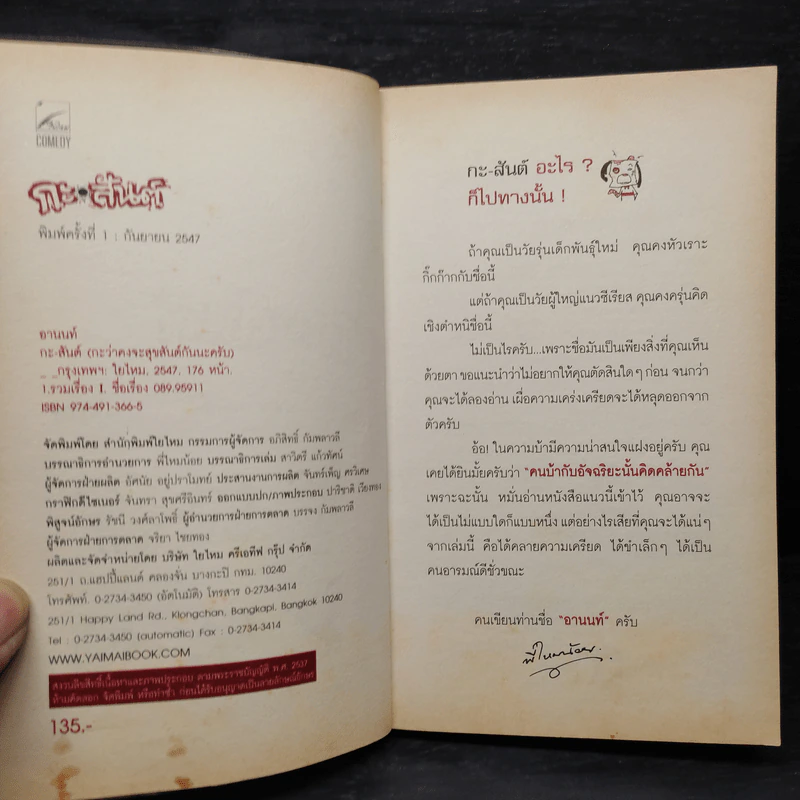 COMEDY
กะ•สันต์
พิมพ์ครั้งที่ 1 : กันยายน 2547
อานนท์
กะ-สันต์ (กะว่าคงจะสุขสันต์กันนะครับ)
_ _กรุงเทพฯ: ใยไหม, 2547, 176 หน้า.
1.รวมเรื่อง I. ชื่อเรื่อง 089.95911
ISBN 974-491-366-5
จัดพิมพ์โดย สำนักพิมพ์ใยไหม กรรมการผู้จัดการ อภิสิทธิ์ กัมพลาวลี
บรรณาธิการอำนวยการ พี่ไหมน้อย บรรณาธิการเล่ม สาวิตรี แก้วทัศน์
ผู้จัดการฝ่ายผลิต อัศนัย อยู่ปราโมทย์ ประสานงานการผลิต จันทร์เพ็ญ ศรวิเศษ
กราฟิกดีไซเนอร์ จันทรา สุขศรีอินทร์ ออกแบบปก/ภาพประกอบ ปาริชาติ เรืองทอง
พิสูจน์อักษร รัชนี วงศ์ลาโพธิ์ ผู้อำนวยการฝ่ายการตลาด บรรจง กัมพลาวลี
ผู้จัดการฝ่ายการตลาด จริยา ไชยทอง
ผลิตและจัดจำหน่ายโดย บริษัท ใยไหม ครีเอทีฟ กรุ๊ป จำกัด
251/1 ถ.แฮปปี้แลนด์ คลองจั่น บางกะปิ กทม. 10240
โทรศัพท์. 0-2734-3450 (อัตโนมัติ) โทรสาร 0-2734-3414
251/1 Happy Land Rd., Klongchan, Bangkapi, Bangkok 10240
Tel : 0-2734-3450 (automatic) Fax : 0-2734-3414
WWW.YAIMAIBOOK.COM
สงวนลิขสิทธิ์เนื้อหาและภาพประกอบ ตามพระราชบัญญัติ พ.ศ. 2537
ห้ามคัดลอก จัดพิมพ์ หรือทำซ้ำ ก่อนได้รับอนุญาตเป็นลายลักษณ์อักษร
135.-
กะ-สันต์ อะไร ?
ก็ไปทางนั้น !
ถ้าคุณเป็นวัยรุ่นเด็กพันธุ์ใหม่ คุณคงหัวเราะ
กิ๊กก๊ากกับชื่อนี้
แต่ถ้าคุณเป็นวัยผู้ใหญ่แนวซีเรียส คุณคงครุ่นคิด
เชิงตำหนิชื่อนี้
ไม่เป็นไรครับ...เพราะชื่อมันเป็นเพียงสิ่งที่คุณเห็น
ด้วยตา ขอแนะนำว่าไม่อยากให้คุณตัดสินใดๆ ก่อน จนกว่า
คุณจะได้ลองอ่าน เผื่อความเคร่งเครียดจะได้หลุดออกจาก
ตัวครับ
อ้อ! ในความบ้ามีความน่าสนใจแฝงอยู่ครับ คุณ
เคยได้ยินมั้ยครับว่า "คนบ้ากับอัจฉริยะนั้นคิดคล้ายกัน"
เพราะฉะนั้น หมั่นอ่านหนังสือแนวนี้เข้าไว้ คุณอาจจะ
ได้เป็นไม่แบบใดก็แบบหนึ่ง แต่อย่างไรเสียที่คุณจะได้แน่ๆ
จากเล่มนี้ คือได้คลายความเครียด ได้ขำเล็กๆ ได้เป็น
คนอารมณ์ดีชั่วขณะ
คนเขียนท่านชื่อ "อานนท์" ครับ
พี่ไหมน้อย